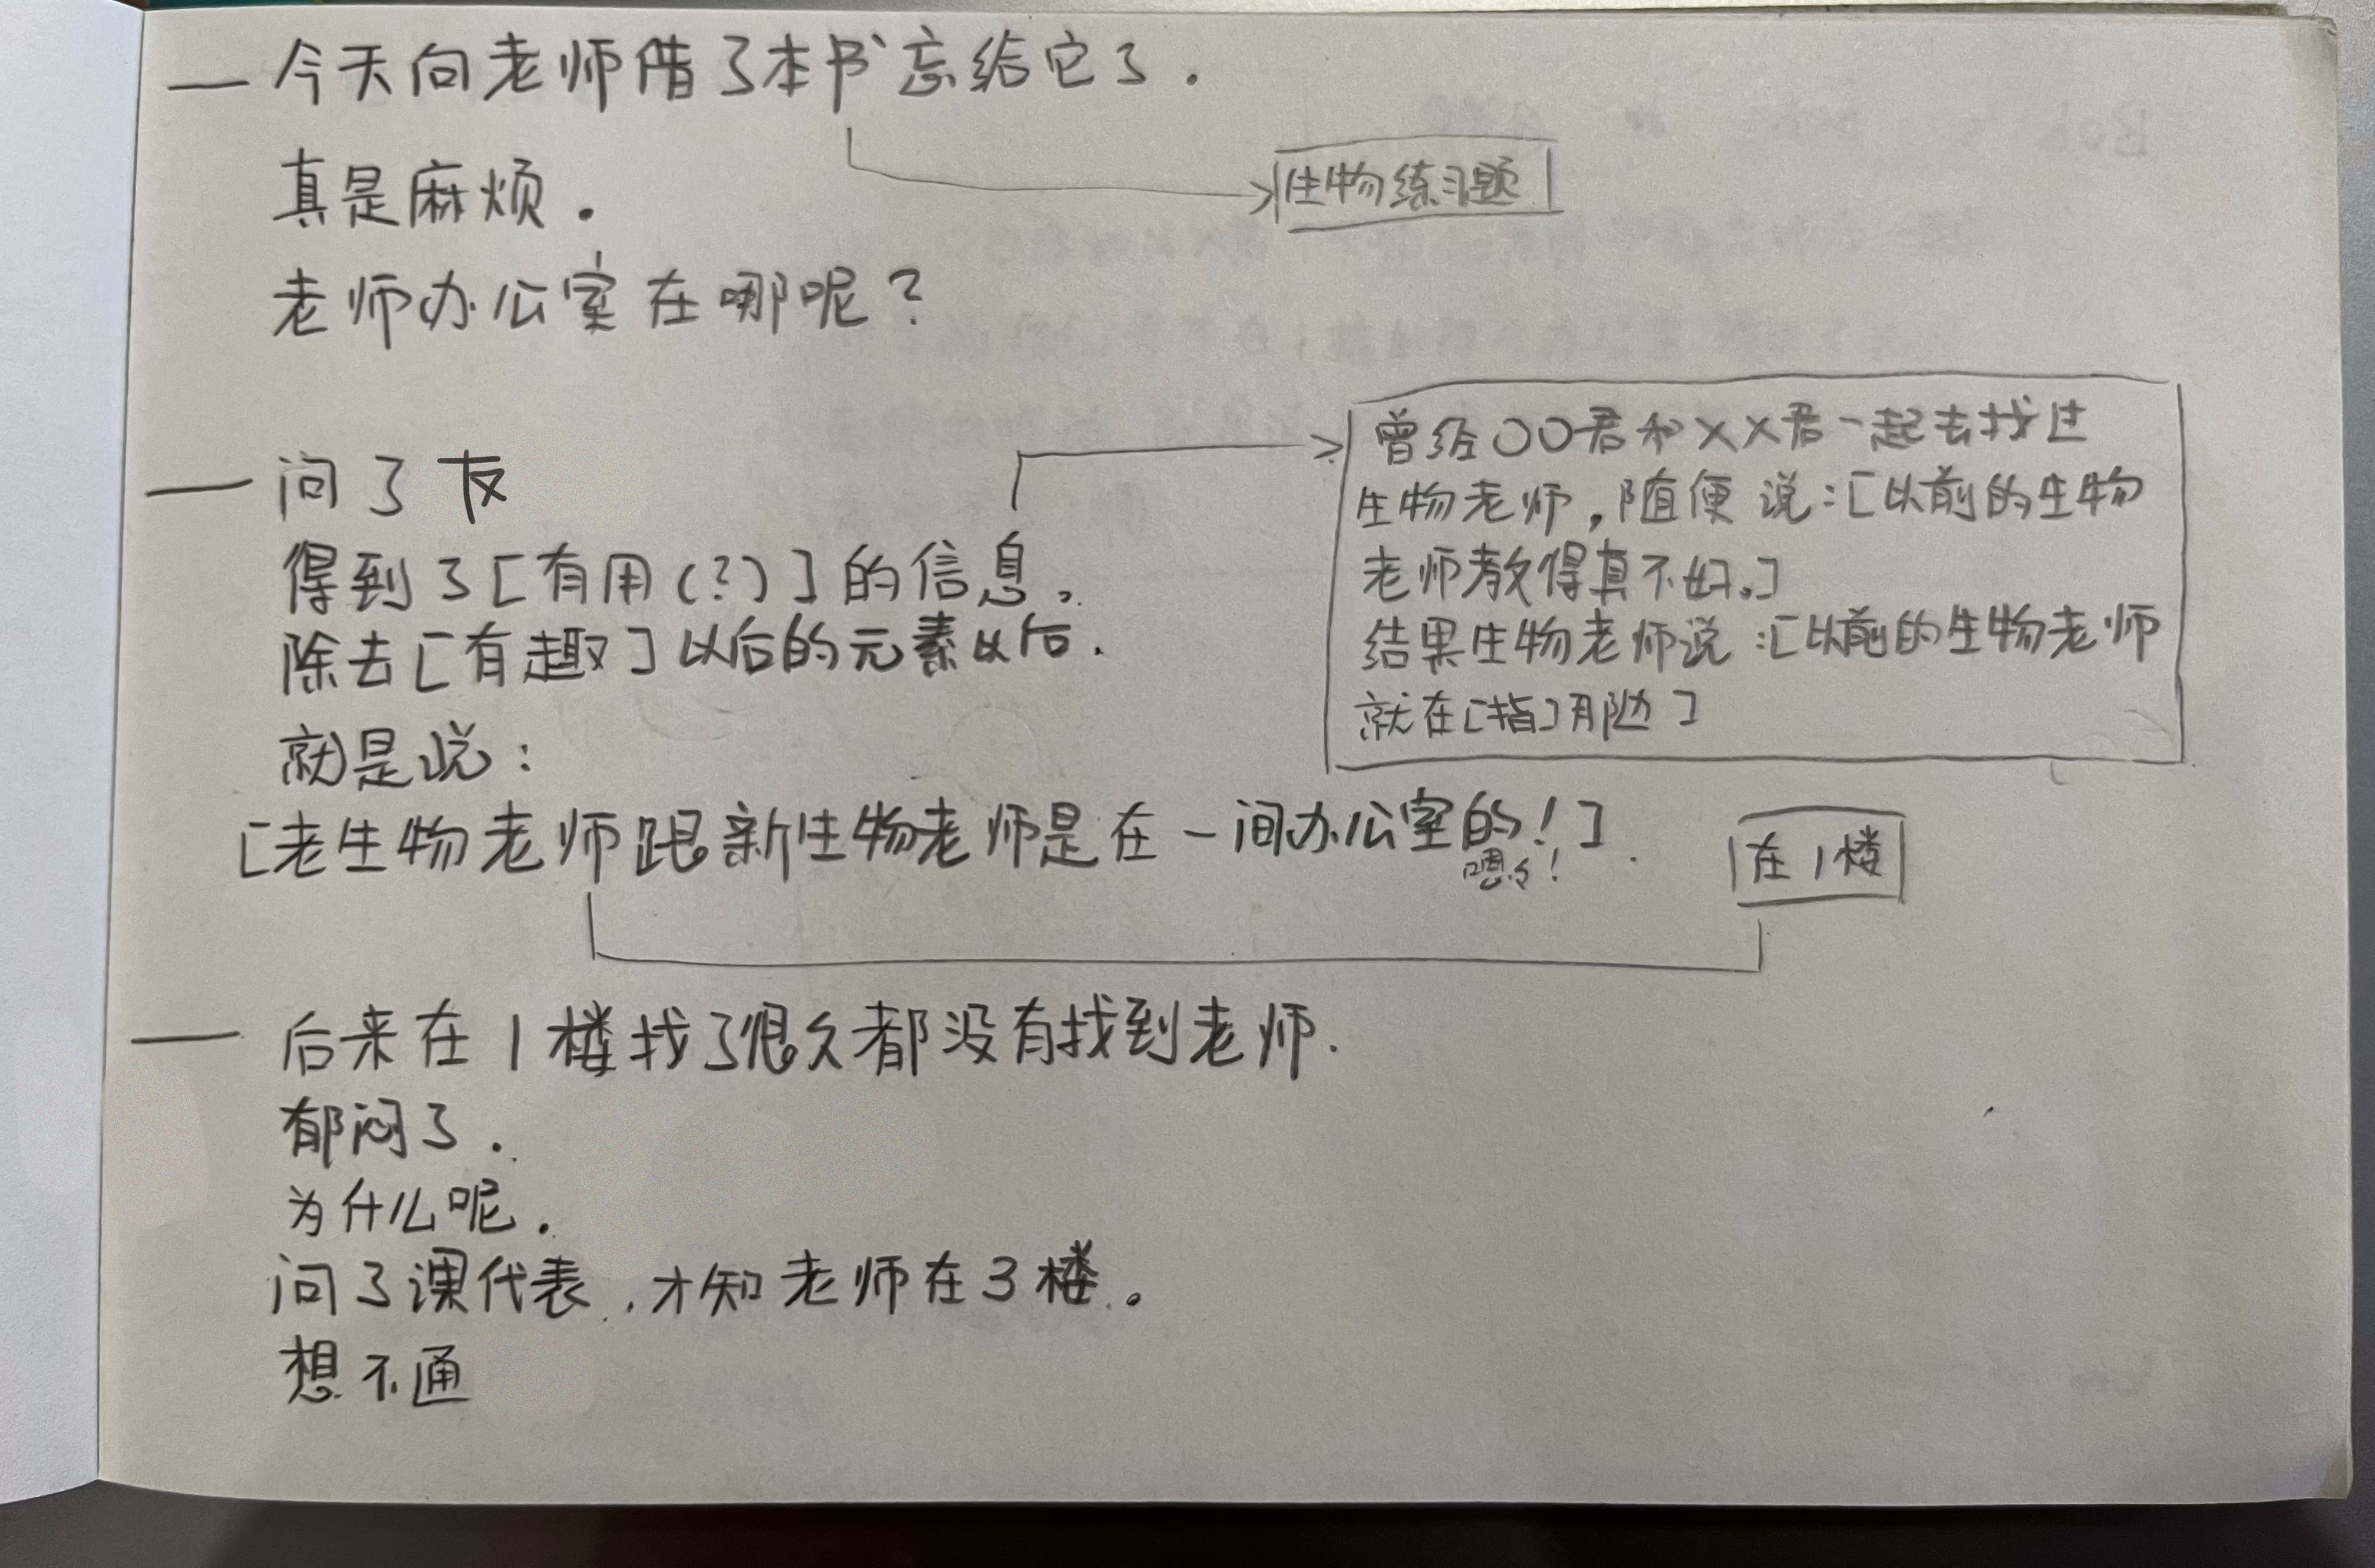 一 今天向老师借了本书忘给它了.
生物练习题
真是麻烦.
老师办公室在哪呢?
一 问了友
得到了[有用(?)]的信息。
除去[有趣]以后的元素以后.
就是说:
曾经〇〇君和××君一起去找过
生物老师,随便说:[以前的生物
老师教得真不好。]
结果生物老师说:[以前的生物老师
就在[指]那边]
[老生物老师跟新生物老师是在一间办公室的!].
嗯々!
在1楼
一 后来在1楼找了很久都没有找到老师.
郁闷了.
为什么呢.
问了课代表,才知老师在3楼。
想不通